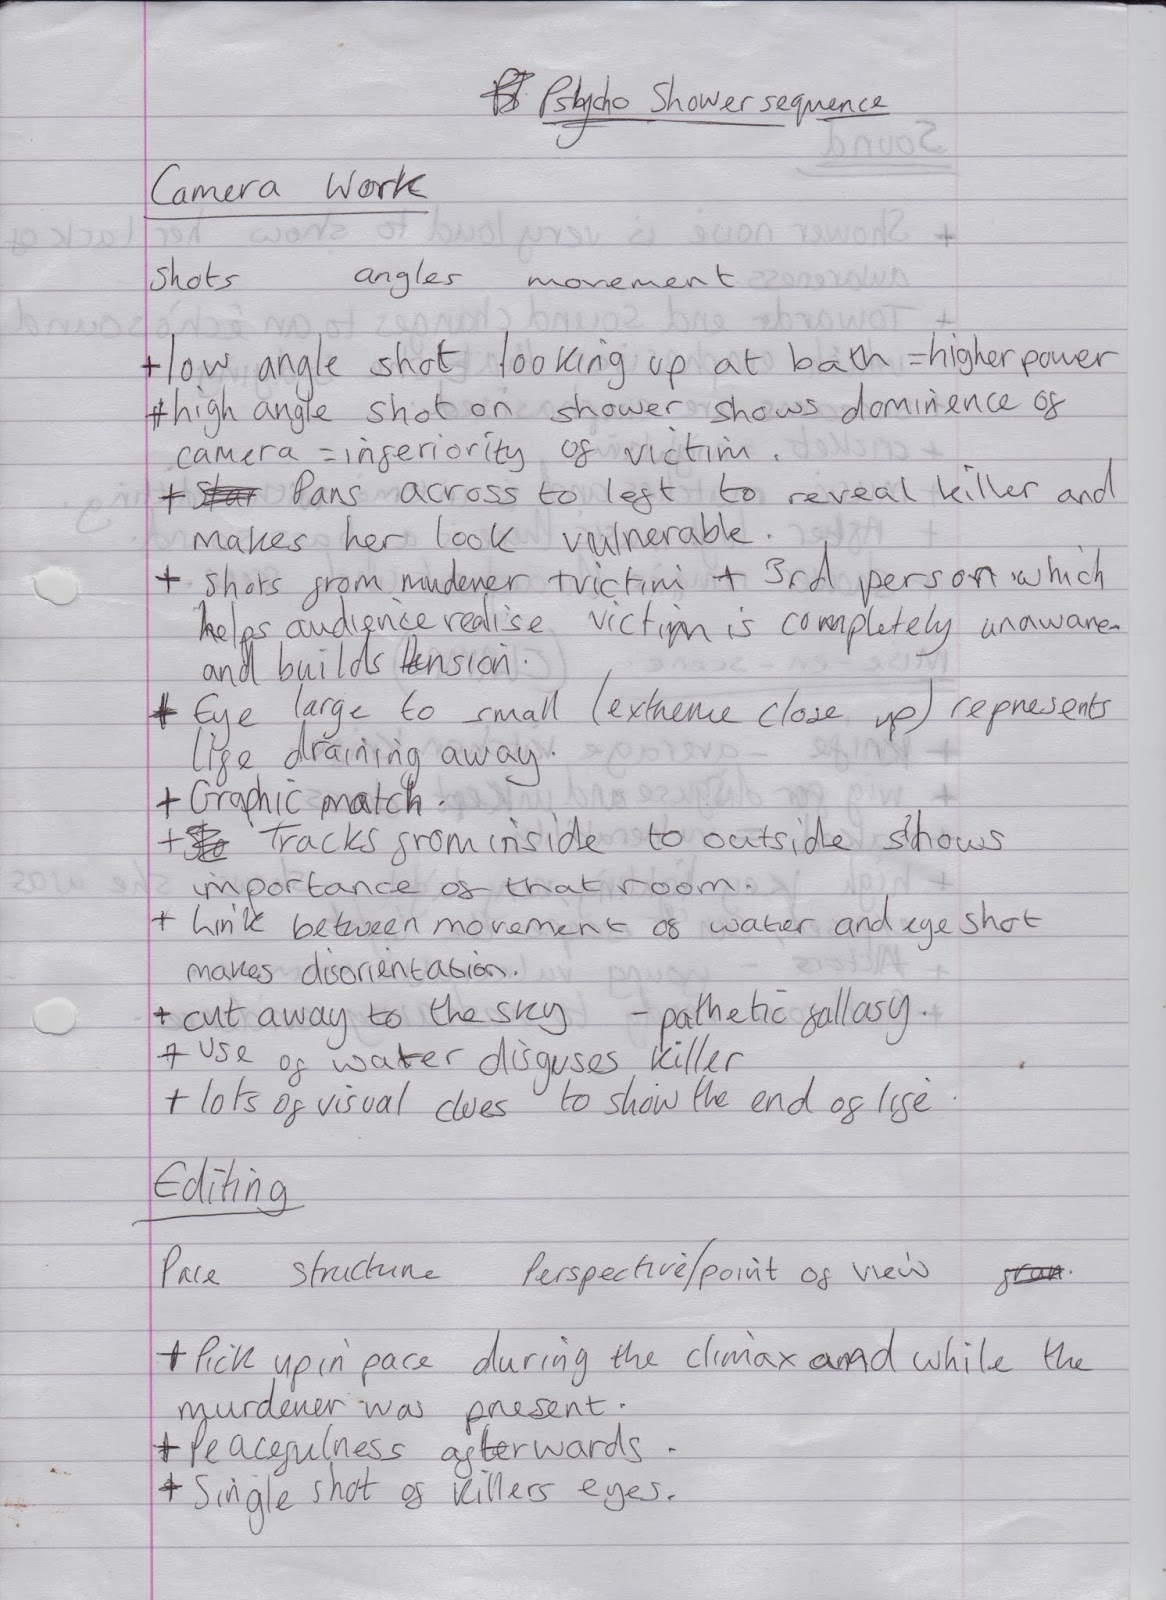 Pstycho Shower sequence
Camera Work
shots angles movement
+ low angle shot looking up at bath = higher power
+ high angle shot on shower shows dominence of
camera = inferiority of victim.
+ Pans across to left to reveal killer and
makes her look vulnerable.
+ shots from muderer + victim + 3rd person which
helps audience realise victim is completely unaware
and builds tension.
+ Eye large to small (extreme close up) represents
life draining away.
+ Graphic match.
+ Tracks from inside to outside shows
importance of that room.
+ Link between movement of water and eye shot
makes disorientation.
+ cut away to the sky - pathetic fallasy.
+ use of water disguses killer
+ lots of visual clues to show the end of life.
Editing
Pace structure Perspective/point of view
+ Pick up in pace during the climax and while the
murderer was present.
+ Peacefulness afterwards.
+ Single shot of killers eyes.